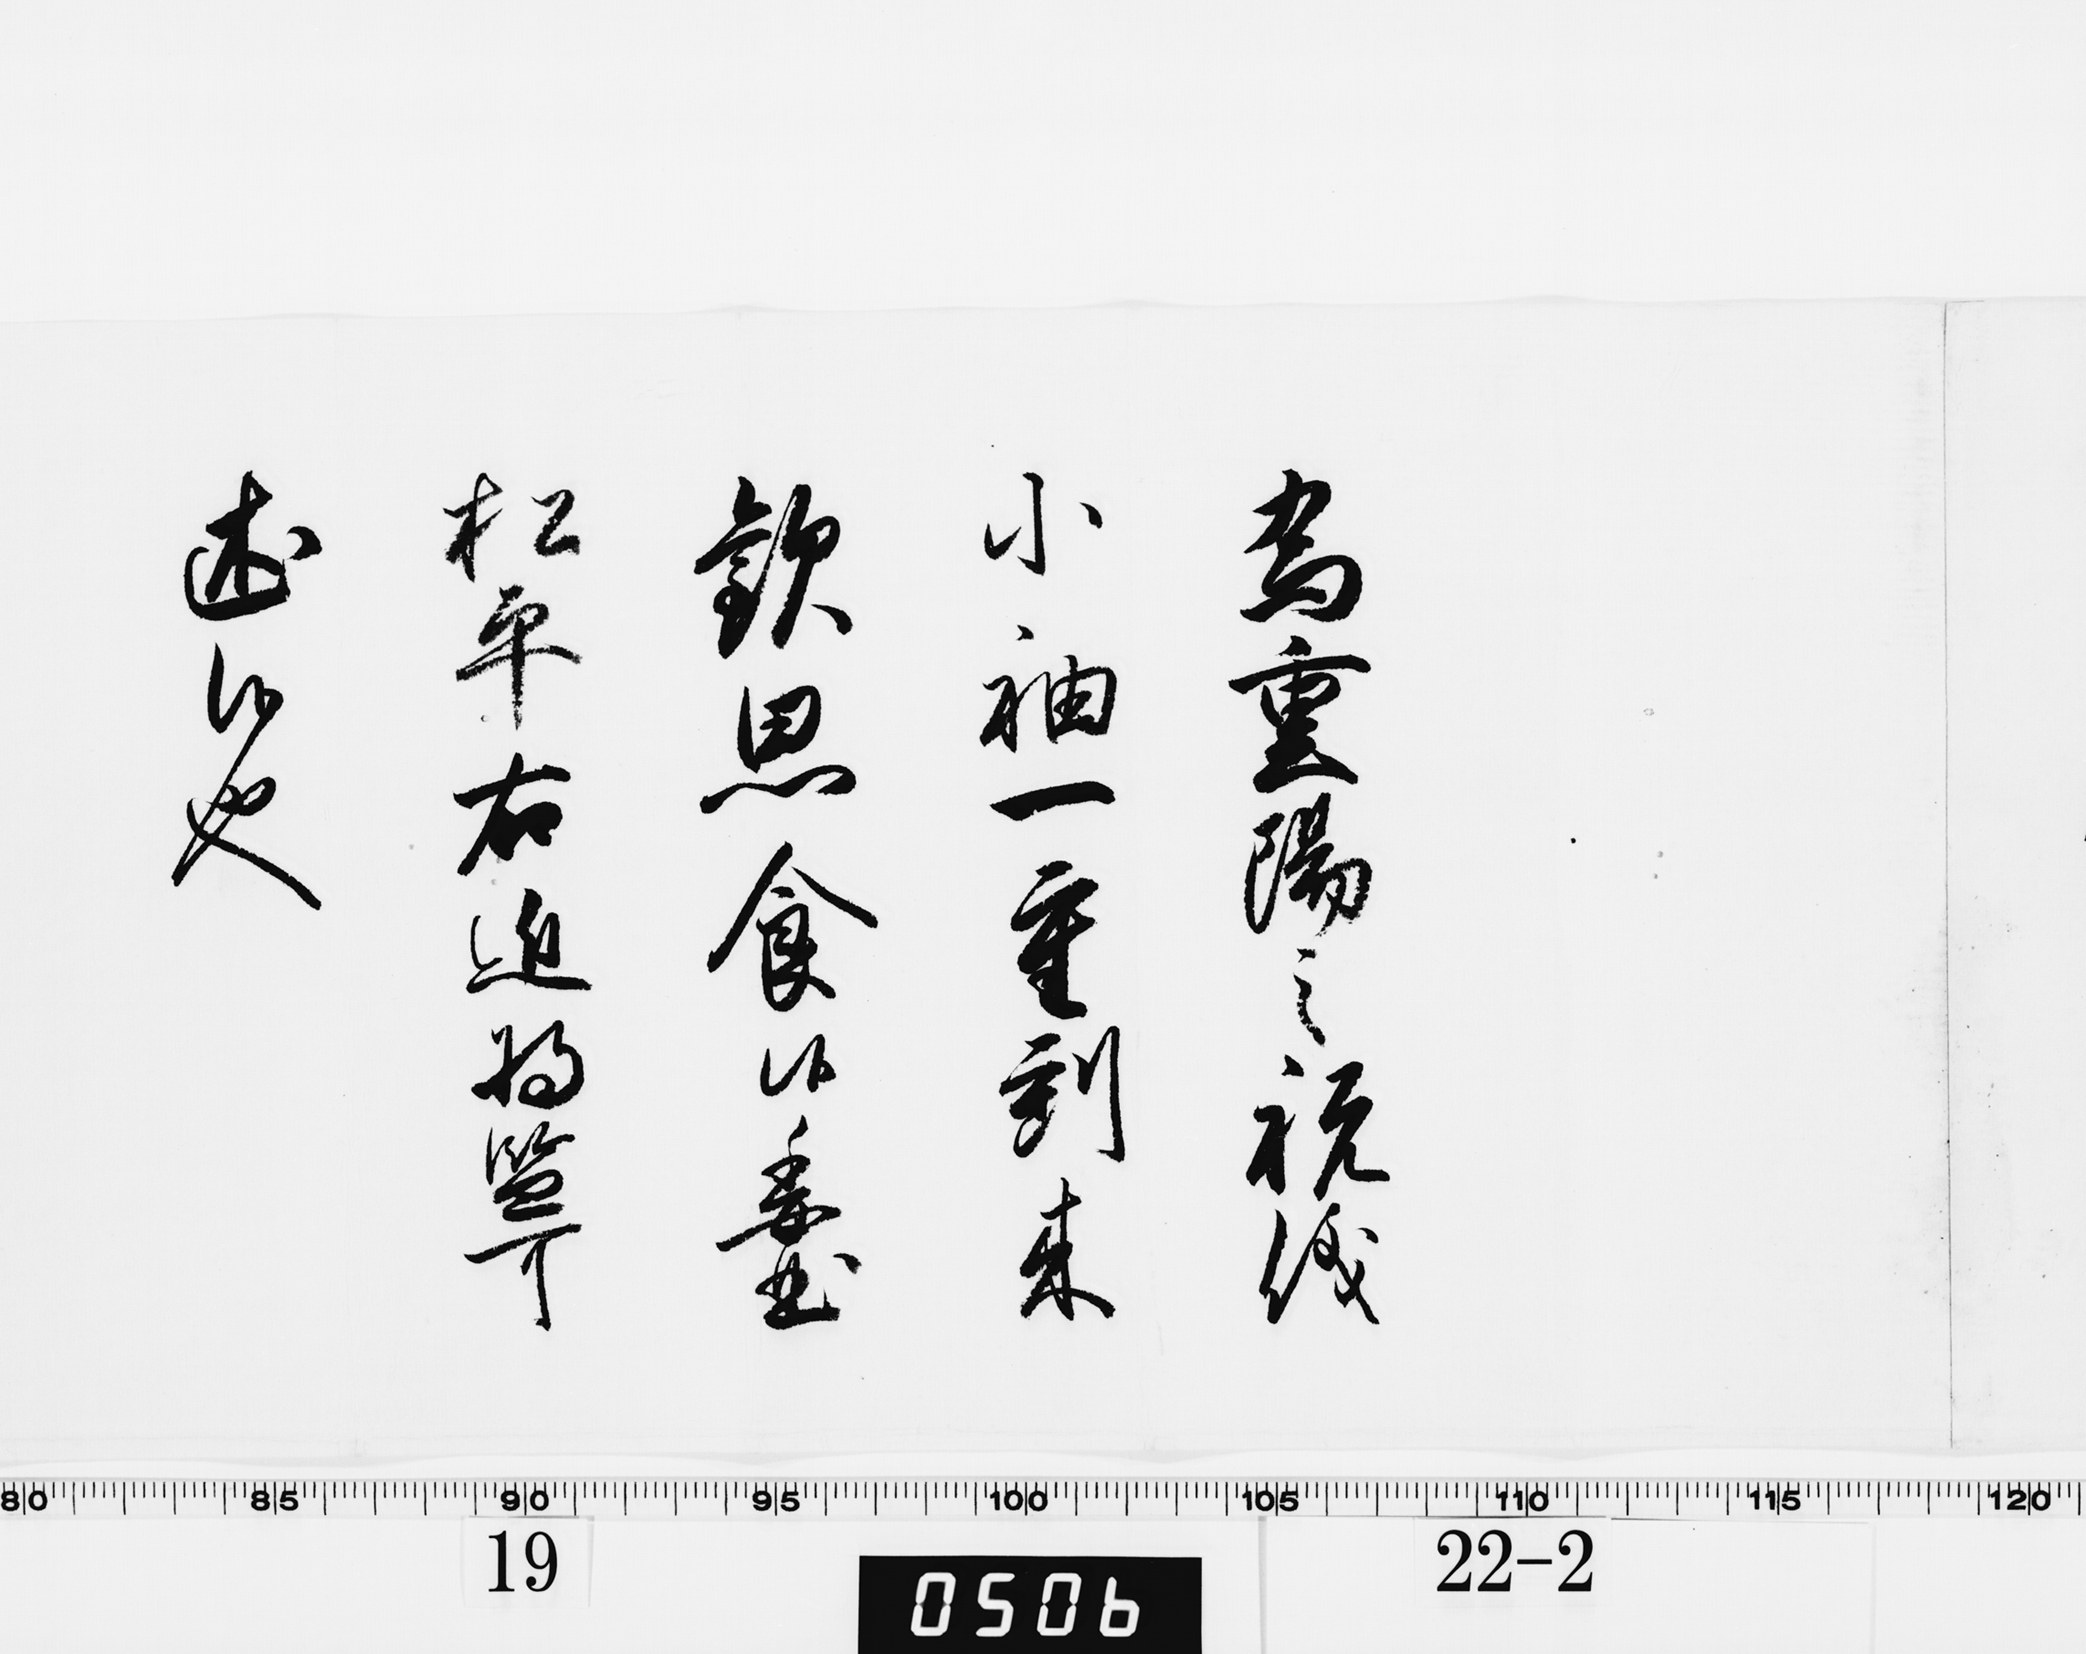 為重陽之祝儀
小袖一重到来
歓思食候委曲
松平右近将監可
述候也
80 85 90 95 100 105 110 115 120
19
22-2
0506